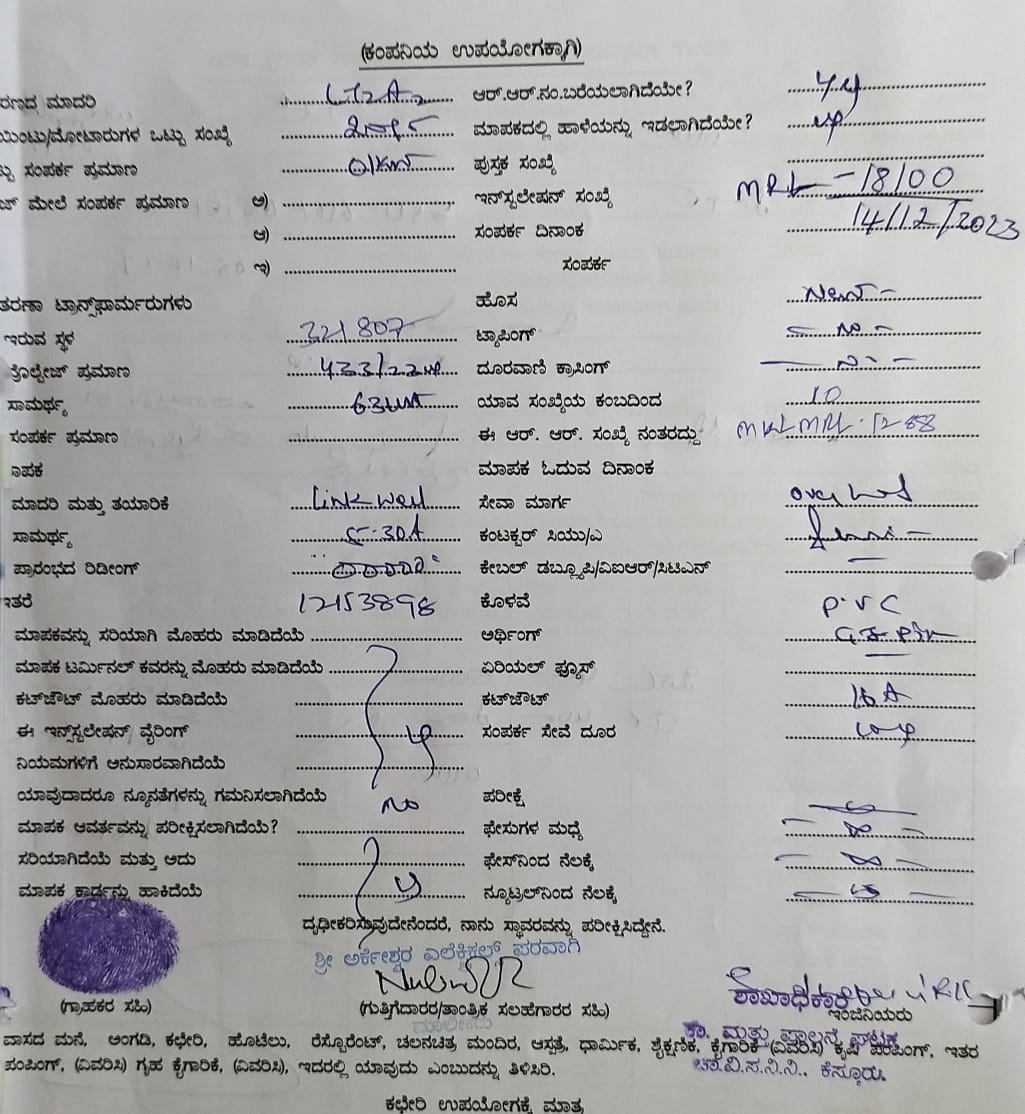 (ಕಂಪನಿಯ ಉಪಯೋಗಕ್ಕಾಗಿ)
ರಣದ ಮಾದರಿ ಆರ್.ಆರ್.ನಂ.ಬರೆಯಲಾಗಿದೆಯೇ?
ಯಿಂಟು/ಮೋಟಾರುಗಳ ಒಟ್ಟು ಸಂಖ್ಯೆ ಮಾಪಕದಲ್ಲಿ ಹಾಳೆಯನ್ನು ಇಡಲಾಗಿದೆಯೇ?
ಟ್ಟು ಸಂಪರ್ಕ ಪ್ರಮಾಣ ಪುಸ್ತಕ ಸಂಖ್ಯೆ
ಜ್ ಮೇಲೆ ಸಂಪರ್ಕ ಪ್ರಮಾಣ ಅ) ಇನ್‌ಸ್ಟಲೇಷನ್ ಸಂಖ್ಯೆ MRL - 18100
ಆ) ಸಂಪರ್ಕ ದಿನಾಂಕ 14/12/2023
ಇ) ಸಂಪರ್ಕ
ತರಣಾ ಟ್ರಾನ್ಸ್‌ಫಾರ್ಮರುಗಳು ಹೊಸ New -
ಇರುವ ಸ್ಥಳ 321807 ಟ್ಯಾಪಿಂಗ್ - no -
ವೋಲ್ಟೇಜ್ ಪ್ರಮಾಣ ದೂರವಾಣಿ ಕ್ರಾಸಿಂಗ್
ಸಾಮರ್ಥ್ಯ ಯಾವ ಸಂಖ್ಯೆಯ ಕಂಬದಿಂದ 10
ಸಂಪರ್ಕ ಪ್ರಮಾಣ ಈ ಆರ್. ಆರ್. ಸಂಖ್ಯೆ ನಂತರದ್ದು
ಾಪಕ ಮಾಪಕ ಓದುವ ದಿನಾಂಕ
ಮಾದರಿ ಮತ್ತು ತಯಾರಿಕೆ Linkwell ಸೇವಾ ಮಾರ್ಗ
ಸಾಮರ್ಥ್ಯ 5-30A ಕಂಟಕ್ಟರ್ ಸಿಯು/ಎ
ಪ್ರಾರಂಭದ ರಿಡೀಂಗ್ ಕೇಬಲ್ ಡಬ್ಲ್ಯೂಪಿ/ವಿಐಆರ್/ಸಿಟಿಎನ್
ಇತರೆ 12153898 ಕೊಳವೆ P.V.C
ಮಾಪಕವನ್ನು ಸರಿಯಾಗಿ ಮೊಹರು ಮಾಡಿದೆಯೆ ಅರ್ಥಿಂಗ್
ಮಾಪಕ ಟರ್ಮಿನಲ್ ಕವರನ್ನು ಮೊಹರು ಮಾಡಿದೆಯೆ ಏರಿಯಲ್ ಫ್ಯೂಸ್
ಕಟ್‌ಜೌಟ್ ಮೊಹರು ಮಾಡಿದೆಯೆ ಕಟ್‌ಜೌಟ್ 16 A
ಈ ಇನ್ಸ್‌ಸ್ಟಲೇಷನ್ ವೈರಿಂಗ್ ಸಂಪರ್ಕ ಸೇವೆ ದೂರ
ನಿಯಮಗಳಿಗೆ ಅನುಸಾರವಾಗಿದೆಯೆ
ಯಾವುದಾದರೂ ನ್ಯೂನತೆಗಳನ್ನು ಗಮನಿಸಲಾಗಿದೆಯೆ no ಪರೀಕ್ಷೆ
ಮಾಪಕ ಆವರ್ತವನ್ನು ಪರೀಕ್ಷಿಸಲಾಗಿದೆಯೆ? ಫೇಸುಗಳ ಮಧ್ಯೆ
ಸರಿಯಾಗಿದೆಯೆ ಮತ್ತು ಅದು ಫೇಸ್‌ನಿಂದ ನೆಲಕ್ಕೆ
ಮಾಪಕ ಕಾರ್ಡನ್ನು ಹಾಕಿದೆಯೆ ನ್ಯೂಟ್ರಲ್‌ನಿಂದ ನೆಲಕ್ಕೆ
ದೃಢೀಕರಿಸುವುದೇನೆಂದರೆ, ನಾನು ಸ್ಥಾವರವನ್ನು ಪರೀಕ್ಷಿಸಿದ್ದೇನೆ.
ಶ್ರೀ ಅರ್ಕೇಶ್ವರ ಎಲೆಕ್ಟ್ರಿಕಲ್ಸ್ ಪರವಾಗಿ
ಶಾಖಾಧಿಕಾರಿ
(ಗ್ರಾಹಕರ ಸಹಿ) (ಗುತ್ತಿಗೆದಾರರ/ತಾಂತ್ರಿಕ ಸಲಹೆಗಾರರ ಸಹಿ) ಇಂಜಿನಿಯರು
ಮಾಲೀಕರು
ಕಾ. ಮತ್ತು ಪಾಲನೆ ಘಟಕ
ವಾಸದ ಮನೆ, ಅಂಗಡಿ, ಕಛೇರಿ, ಹೊಟೇಲು, ರೆಸ್ಟೊರೆಂಟ್, ಚಲನಚಿತ್ರ ಮಂದಿರ, ಆಸ್ಪತ್ರೆ, ಧಾರ್ಮಿಕ, ಶೈಕ್ಷಣಿಕ, ಕೈಗಾರಿಕೆ (ವಿವರಿಸಿ) ಕೃಷಿ ಪಂಪಿಂಗ್, ಇತರ
ಪಂಪಿಂಗ್, (ವಿವರಿಸಿ) ಗೃಹ ಕೈಗಾರಿಕೆ, (ವಿವರಿಸಿ), ಇದರಲ್ಲಿ ಯಾವುದು ಎಂಬುದನ್ನು ತಿಳಿಸಿರಿ.
ಚಾ.ವಿ.ಸ.ನಿ.ನಿ., ಕೆಸ್ತೂರು.
ಕಛೇರಿ ಉಪಯೋಗಕ್ಕೆ ಮಾತ್ರ